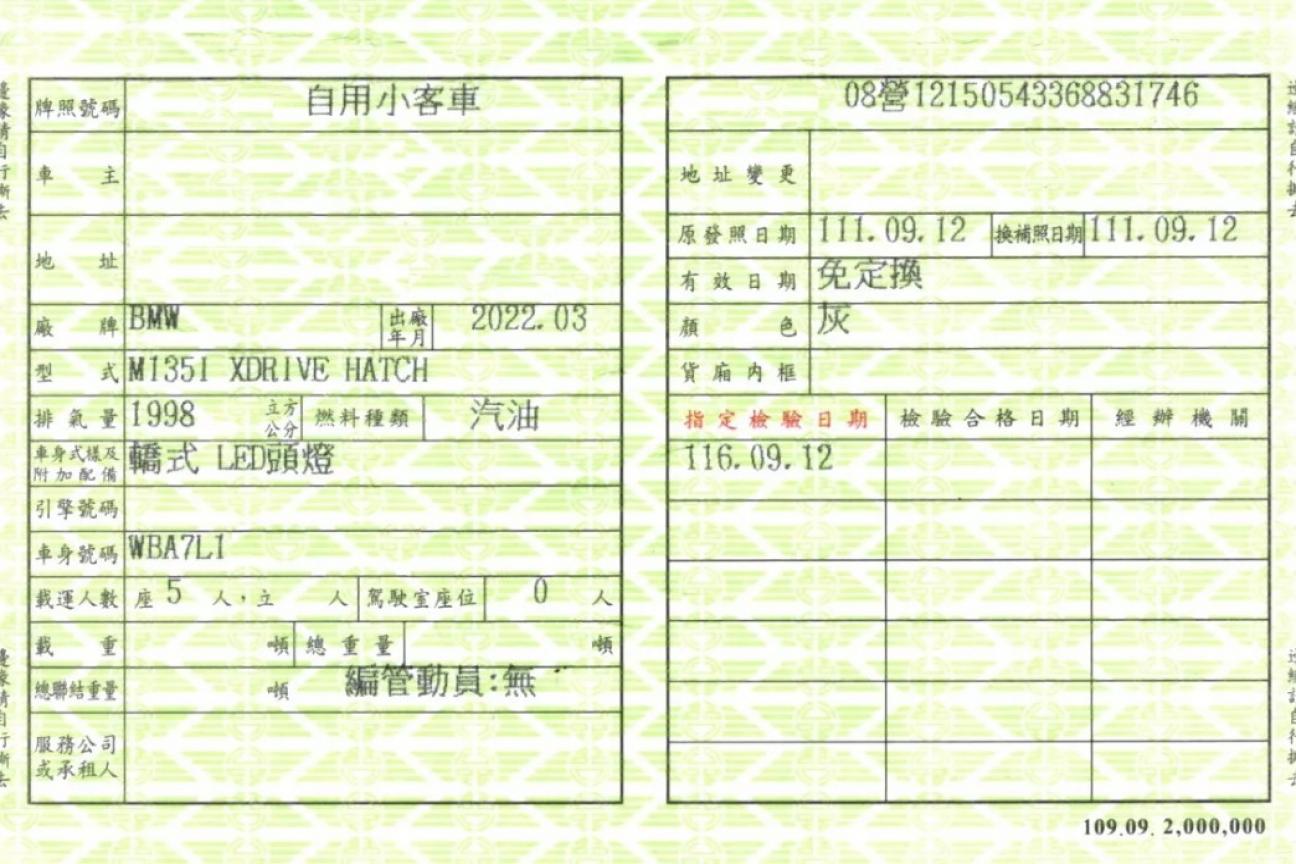 牌照號碼 自用小客車
車主
地址
廠牌 BMW 出廠年月 2022.03
型式 M135I XDRIVE HATCH
排氣量 1998 立方公分 燃料種類 汽油
車身式樣及附加配備 轎式 LED頭燈
引擎號碼
車身號碼 WBA7L1
載運人數 座 5 人，立 人 駕駛室座位 0 人
載重 噸 總重量 噸
總聯結重量 噸 編管動員:無
服務公司或承租人
08營12150543368831746
地址變更
原發照日期 111.09.12 換補照日期 111.09.12
有效日期 免定換
顏色 灰
貨廂內框
指定檢驗日期 檢驗合格日期 經辦機關
116.09.12
109.09. 2,000,000